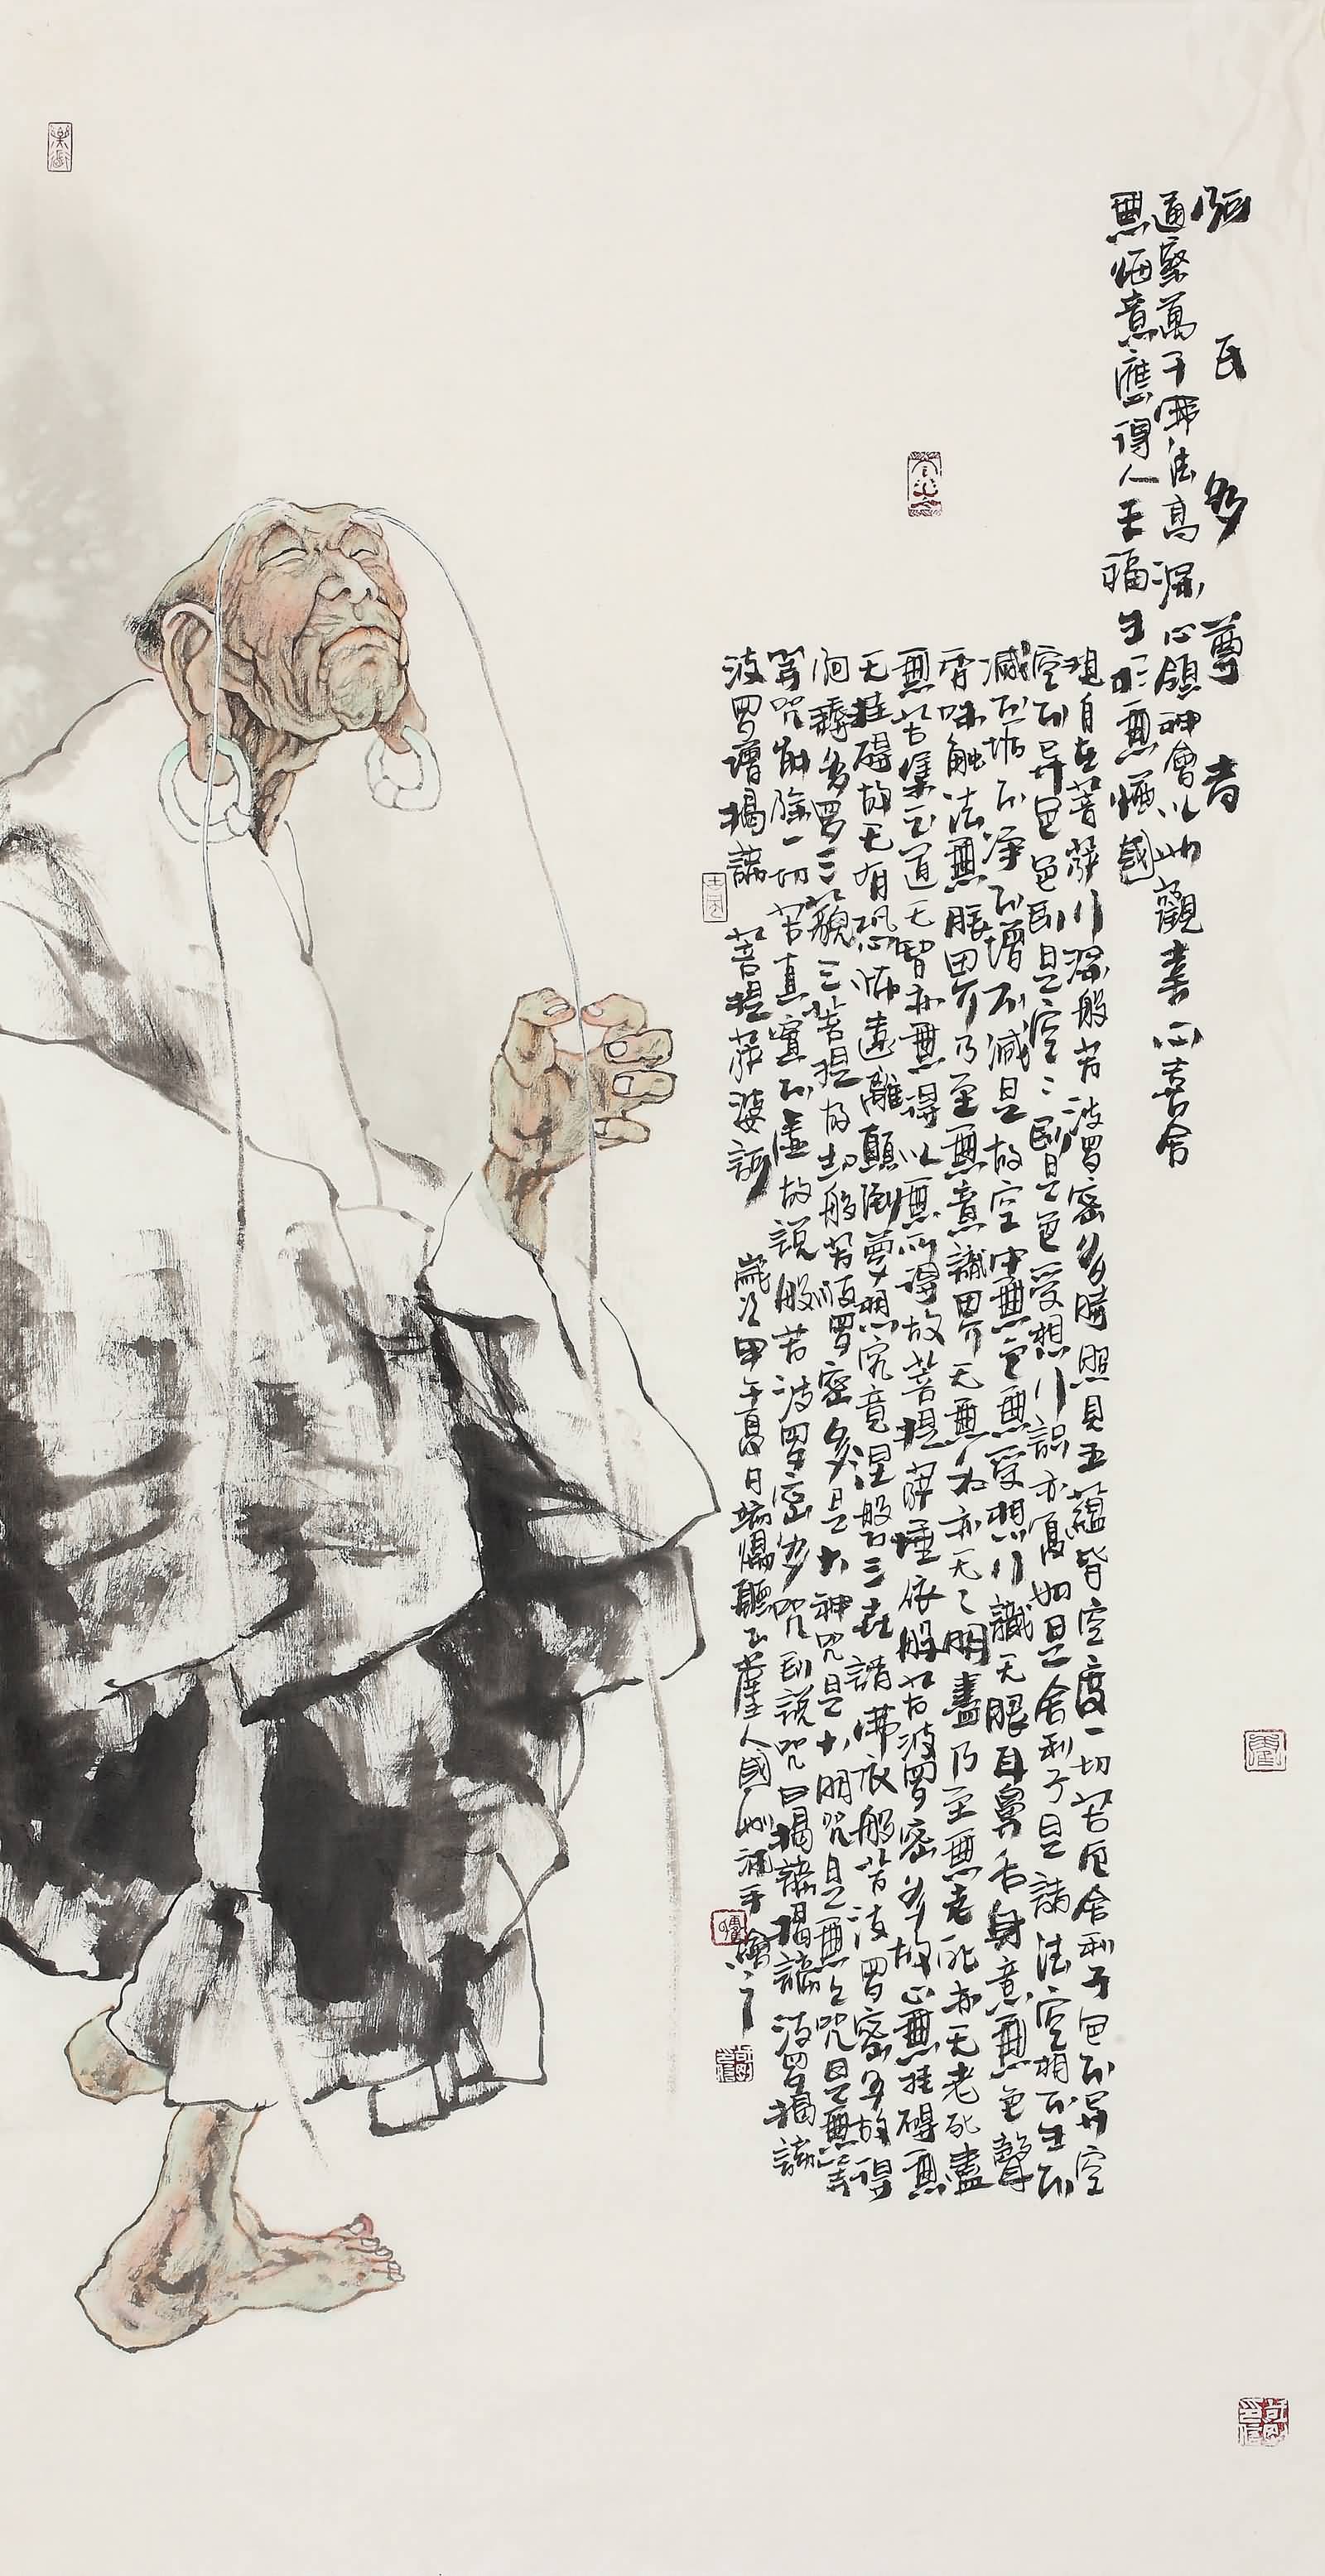 阿氏多尊者
通察萬千佛法高深心領神會以此觀書而喜舍
無悔意應得人天福生形無國
觀自在菩薩行深般若波羅密多時照見五蘊皆空度一切苦厄舍利子色不异空
空不异色色即是空〻即是色受想行識亦復如是舍利子是諸法空相不生不
滅不垢不淨不增不減是故空中無色無受想行識无眼耳鼻舌身意無色聲
香味觸法無眼界乃至無意識界无無明亦无〻明盡乃至無老死亦无老死盡
無苦集滅道无智亦無得以無所得故菩提薩埵依般若波羅密多故心無挂礙無
无挂礙故无有恐怖遠離顛倒夢想究竟涅般三世諸佛依般若波羅密多故得
阿耨多羅三藐三菩提故知般若波羅密多是大神咒是大明咒是無上咒是無等
等咒能除一切苦真實不虛故說般若波羅密多咒即說咒曰揭諦揭諦波羅揭諦
波羅僧揭諦 菩提薩婆訶 歲次甲午夏日人國手繪之